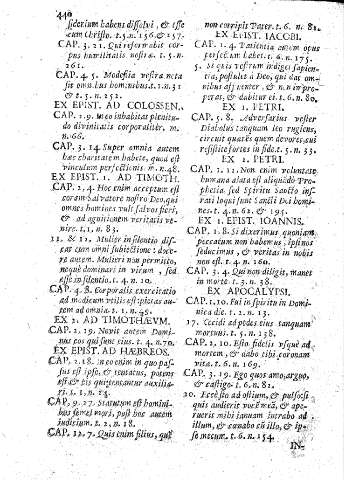 440
siderium habens dissolvi, & esse
cum Christo. t.5.n.156.& 257.
CAP. 3. 21. Qui reformabit cor-
pus humilitatis nostræ. t.5.n.
261.
CAP. 4. 5. Modestia vestra nota
sit omnibus hominibus. t.1.n.31
& t.5.n.252.
EX EPIST. AD COLOSSEN.
CAP. 2.9. In eo inhabitat plenitu-
do divinitatis corporaliter. m.
n.66.
CAP. 3. 14. Super omnia autem
hæc charitatem habete, quod est
vinculum perfectionis. m.n.48.
EX EPIST. 1. AD TIMOTH.
CAP. 2.4. Hoc enim acceptum est
coram Salvatore nostro Deo, qui
omnes homines vult salvos fieri,
& ad agnitionem veritatis ve-
nire. t.1, n.83.
11. & 12. Mulier in silentio dis-
cat cum omni subjectione: doce-
re autem. Mulieri non permitto,
neque dominari in virum, sed
esse in silentio. t.4.n.20.
CAP. 4.8. Corporalis exercitatio
ad modicum utilis est: pietas au-
tem ad omnia. t.1.n.45.
EX 2. AD TIMOTHÆVM.
CAP. 2.19. Novit autem Domi-
nus eos qui sunt eius. t.4.n.70.
EX EPIST. AD HÆBREOS.
CAP. 2.18. In eo enim in quo pas-
sus est ipse, & tentatus, potens
est & eis qui tentantur auxilia-
ri. t.1.n.24.
CAP. 9.27. Statutum est homini-
bus semel mori, post hoc autem
iudicium. t.2.n.18.
CAP. 12.7. Quis enim filius, què
non corripit Pater. t.6.n.82.
EX EPIST. IACOBI.
CAP. 1.4. Patientia autem opus
perfectum habet. t.6.n.175.
5. Si quis vestrum indiget sapien-
tia, postulet à Deo, qui dat om-
nibus affluenter, & non impro-
perat, & dabitur ei. t.6.n.80.
EX 1. PETRI.
CAP. 5.8. Adversarius vester
Diabolus tanquam leo rugiens,
circuit quærens quem devoret, cui
resistite fortes in fide. t.5.n.33.
EX 2. PETRI.
CAP. 1.21. Non enim voluntate
humana alata est aliquãdo Pro-
phetia, sed Spiritu Sancto inspi-
rati loquuti sunt Sancti Dei homi-
nes. t.4.n.62. & 195.
EX 1. EPIST. IOANNIS.
CAP. 1.8. Si dixerimus quoniam
peccatum non habemus, ipsi nos
seducimus, & veritas in nobis
non est. t.4.n.160.
CAP. 3.4. Qui non diligit, manet
in morte. t.3.n.38.
EX APOCALYPSI.
CAP. 1.10. Fui in spiritu in Domi-
nica die. t.2.n.13.
17. Cecidi ad pedes eius tanquam
mortuus. t.5.n.138.
CAP. 2.10. Esto fidelis usque ad
mortem, & dabo tibi coronam
vitæ. t.6.n.169.
CAP. 3.19. Ego quos amo, arguo,
& castigo. t.6.n.82.
20. Ecce sto ad ostium, & pulso: si
quis audierit vocẽ meã, & ape-
ruerit mihi ianuam intrabo ad
illum, & cœnabo cũ illo, & ip-
se mecum. t.6.n.154.
IN-